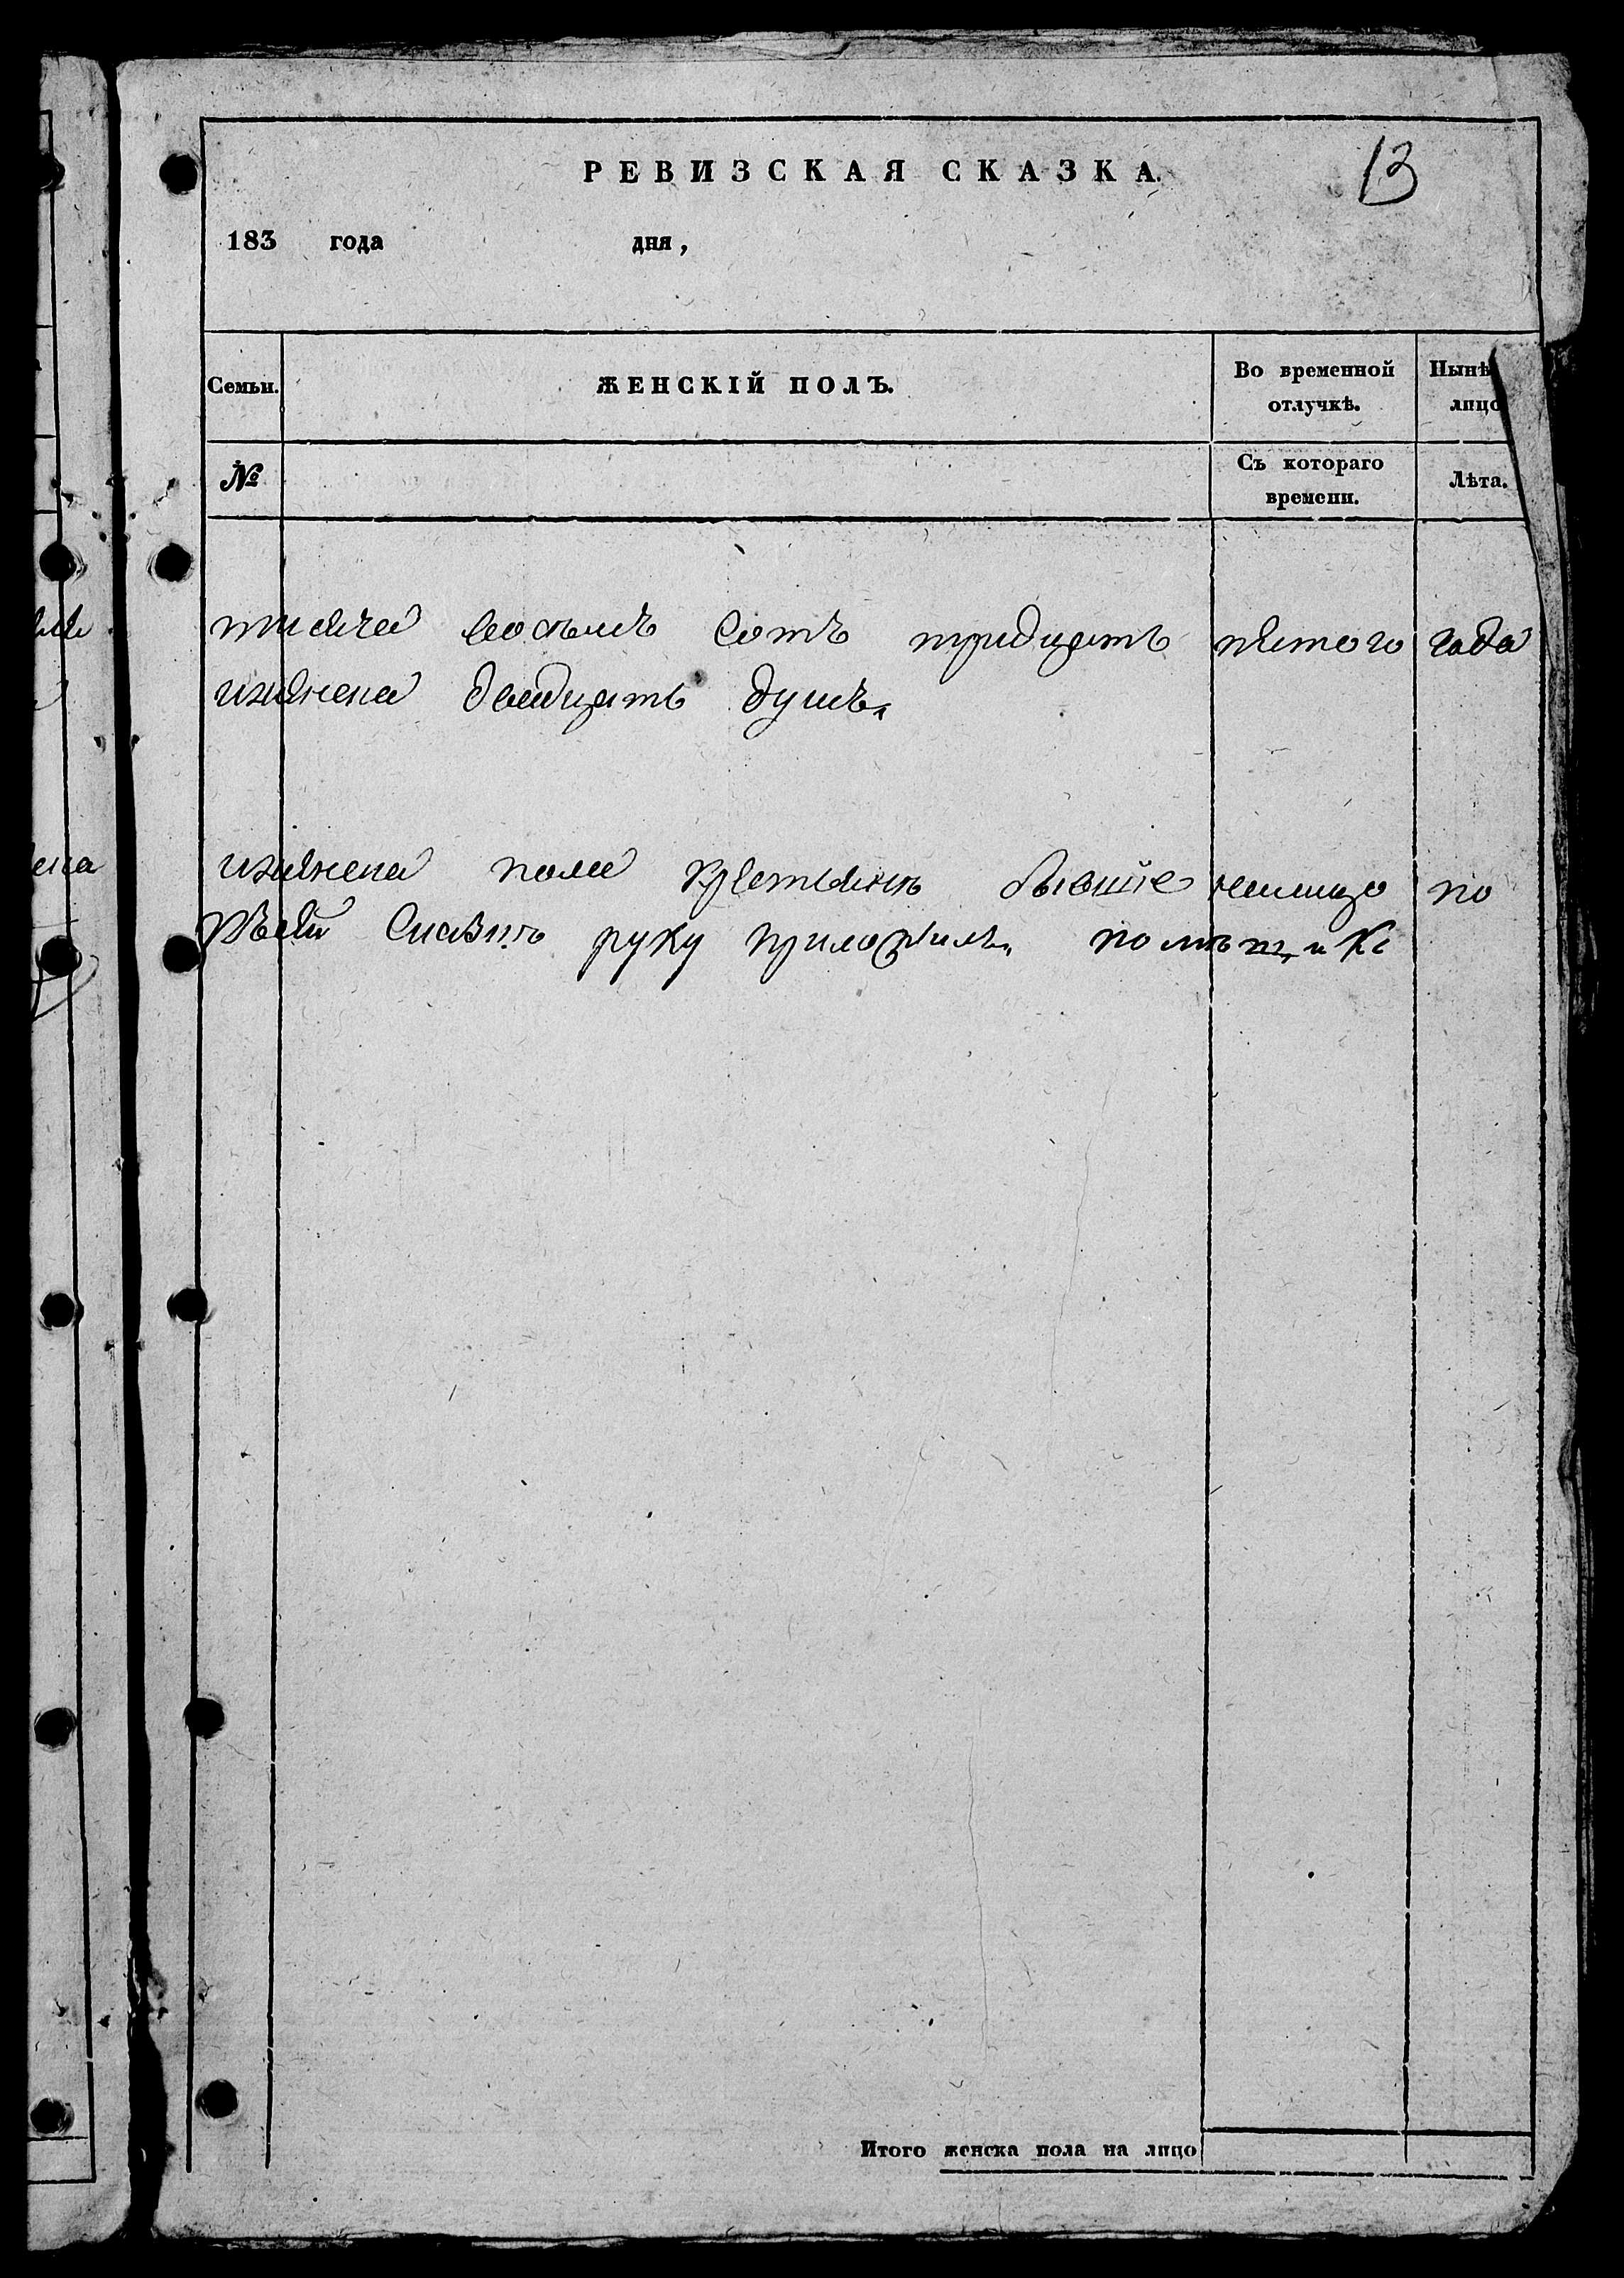 РЕВИЗСКАЯ СКАЗКА.
13
183 года дня,
Семьи.
ЖЕНСКІЙ ПОЛЪ.
Во временной отлучкѣ.
Нынѣ
лицо
№
Съ котораго времени.
Лѣта.
тисяча восемъ сотъ тридцать пятого года
ижѣнска двадцать душъ
ижѣнска пола крѣстьянъ бывшіе налицо по
сказкѣ руку приложилъ помѣщикъ
ена
Итого женска пола на лицо